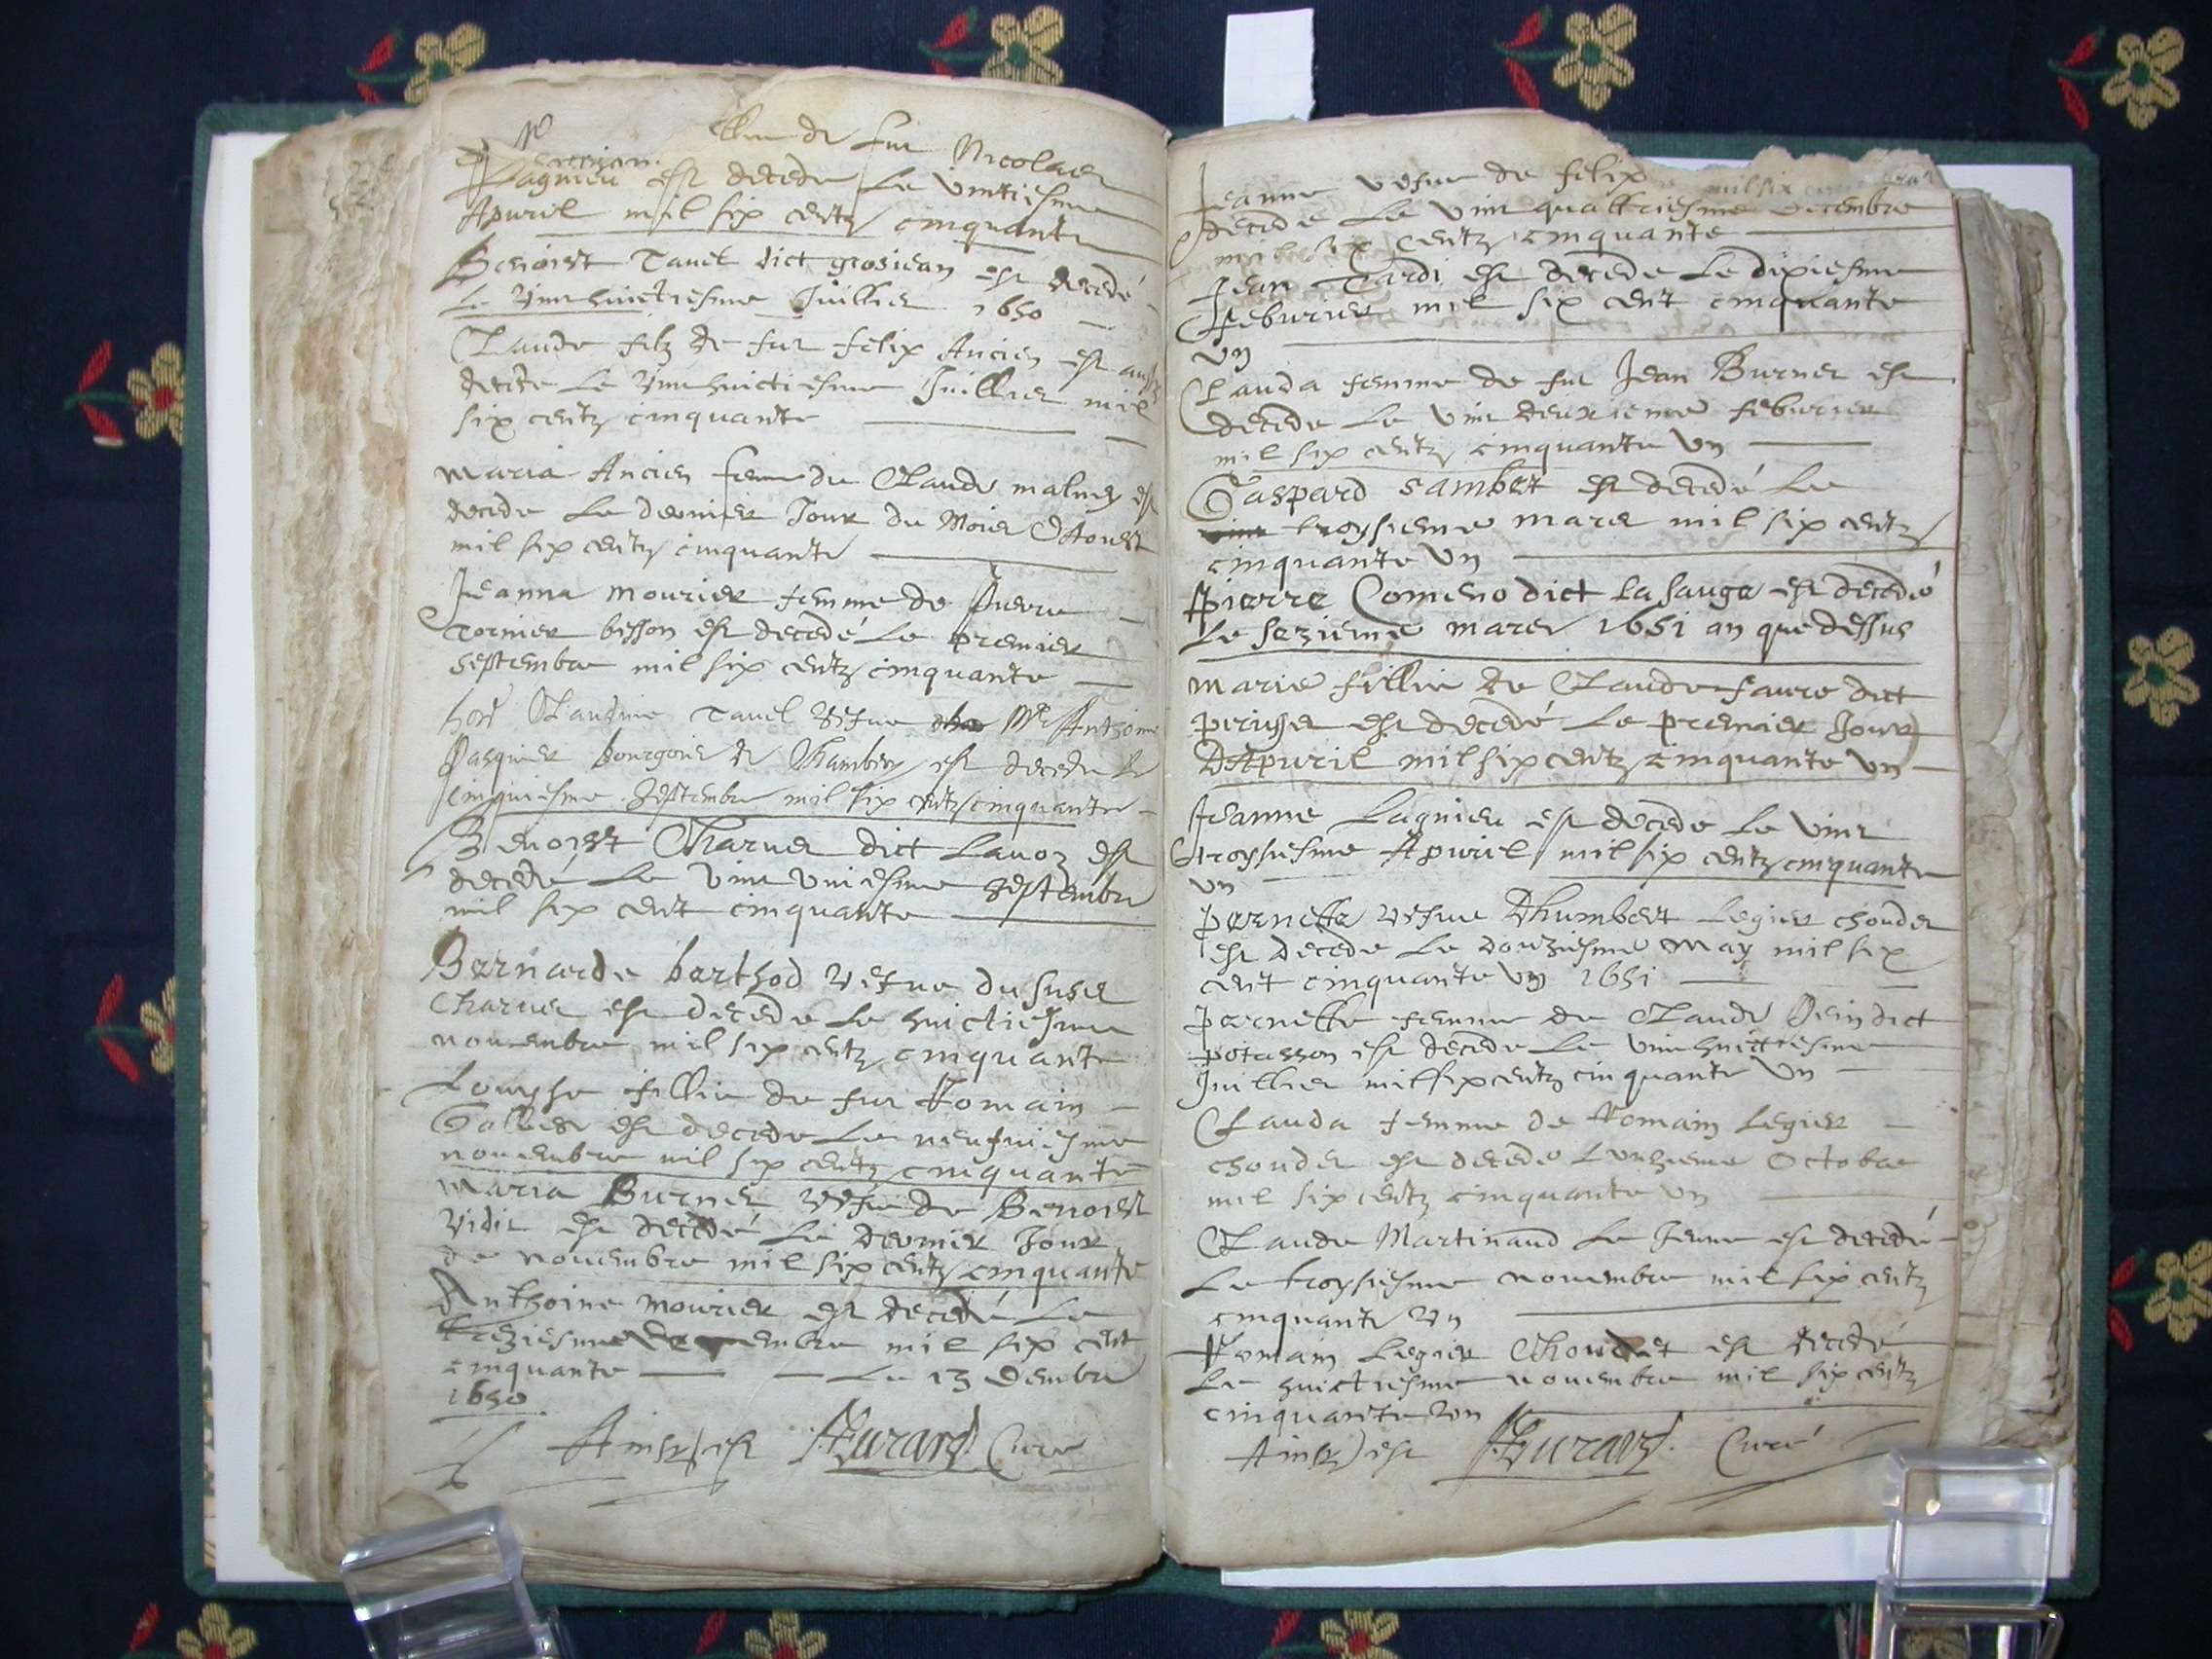 de feu Nicolas
Lagnieu est decede Le vintiesme
Apuril mil six centz cinquante
Benoist Tavel dict grosjean est decedé
Le vinthuictiesme Juillier 1650
Claude filz de feu felix Ancien est
decede Le vinthuictiesme Juillier mil
six centz cinquante
Maria Ancien femme de Claude est
decede Le dernier Jour du Mois d'Aoust
mil six centz cinquante
Jeanna mourier femme de Pierre
Tornier bisson est decedé Le premier
septembre mil six centz cinquante
hon Claudine Tavel vefue Mre Anthoine
Pasquier bourgois de Chambery est decede le
cinquiesme Septembre mil six centz cinquante
Benoist Charvet dict Lavoz est
decedé Le vint uniesme septembre
mil six cent cinquante
Bernarde berthod vefue du susd
Charvet est decede Le huictiesme
novembre mil six centz cinquante
Louyse fillie de feu Romain
est decede Le neufuiesme
novembre mil six centz cinquante
Maria Burnet vefue de Benoist
Vidit est decedé Le dernier Jour
de novembre mil six centz cinquante
Anthoine mourier est decedé Le
treziesme mil six cent
cinquante Le 13
1650
Ainsy est Curé
Jeanne vefue de felix
decede Le vint quattriesme decembre
mil six centz cinquante
Jean Tardi est decede Le dixiesme
feburier mil six cent cinquante
un
Clauda femme de feu Jean Burnet est
decede Le vint deuxieme feburier
mil six centz cinquante un
Gaspard Sambet est decedé Le
troysieme mars mil six centz
cinquante un
Pierre Comeno dict La sauge est decedé
Le sezieme mars 1651 an que dessus
marie fillie de Claude faure dict
est decedé Le premier Jour
d'Apuril mil six centz cinquante un
Jeanne Lagnieu est decede Le vint
troysiesme Apuril mil six centz cinquante
un
pernette vefue d'humbert Legier choudet
est decede Le douziesme may mil six
cent cinquante un 1651
pernette femme de Claude dict
potasson est decede Le vinthuictiesme
Juillier mil six centz cinquante un
Clauda femme de Romain Legier
choudet est decede L'onzieme Octobre
mil six centz cinquante un
Claude Martinaud Le Jeune est decedé
Le troysiesme novembre mil six centz
cinquante un
Romain Legier Choudet est decedé
Le huictiesme novembre mil six centz
cinquante un
Ainsy est Curé